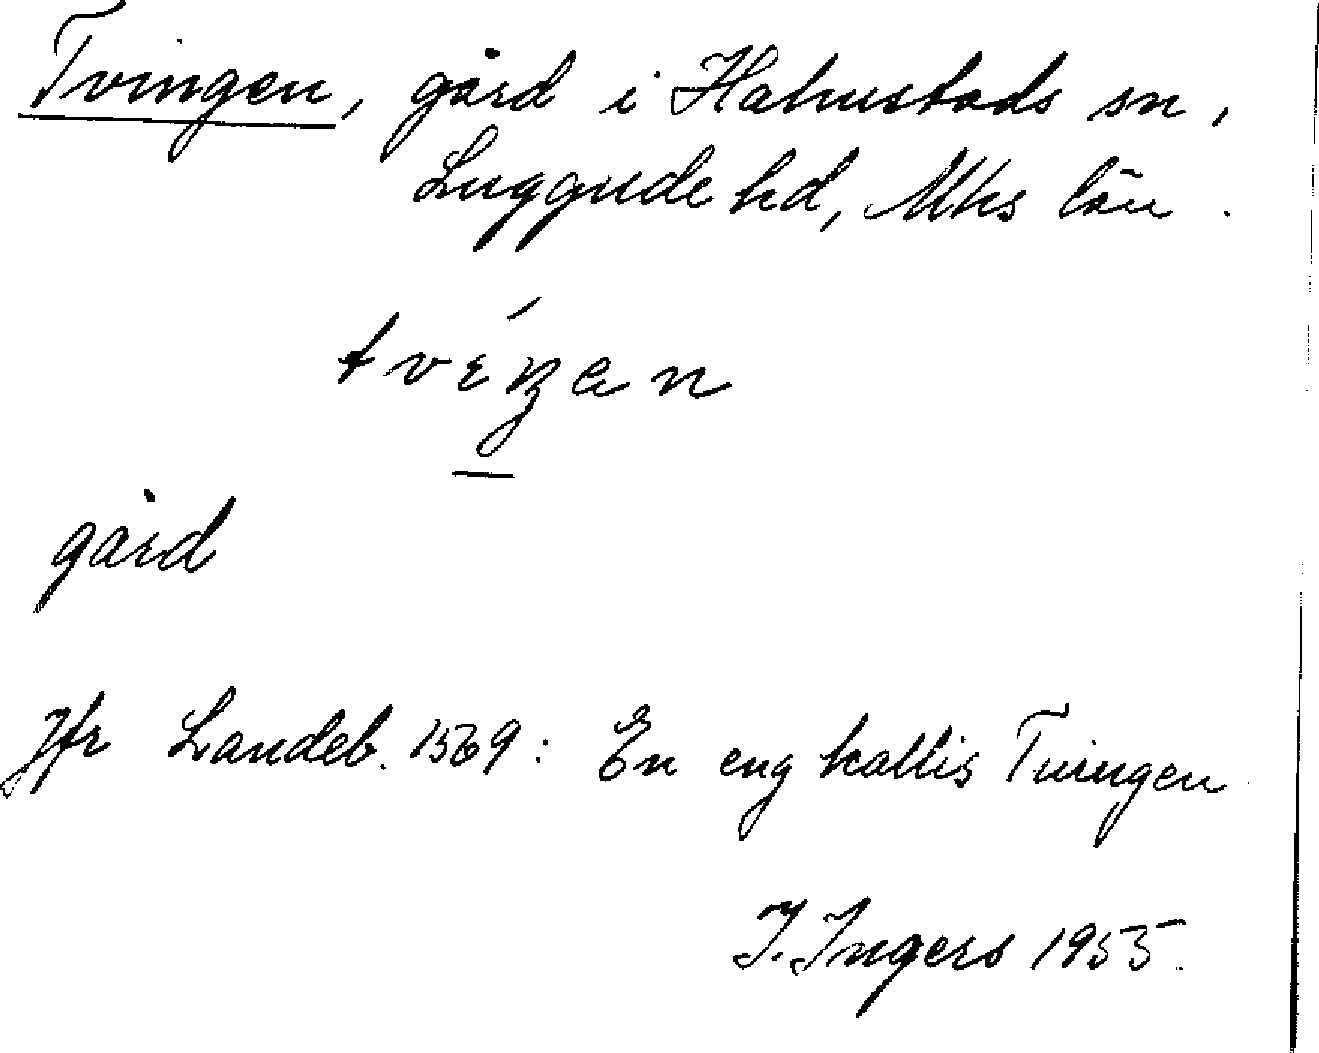 Tvingen, gård i Halmstads sn,
Luggude hd, Mhs län.
gård
Jfr Landeb. 1569: En eng kallis Tuingen
I. Ingers 1955.